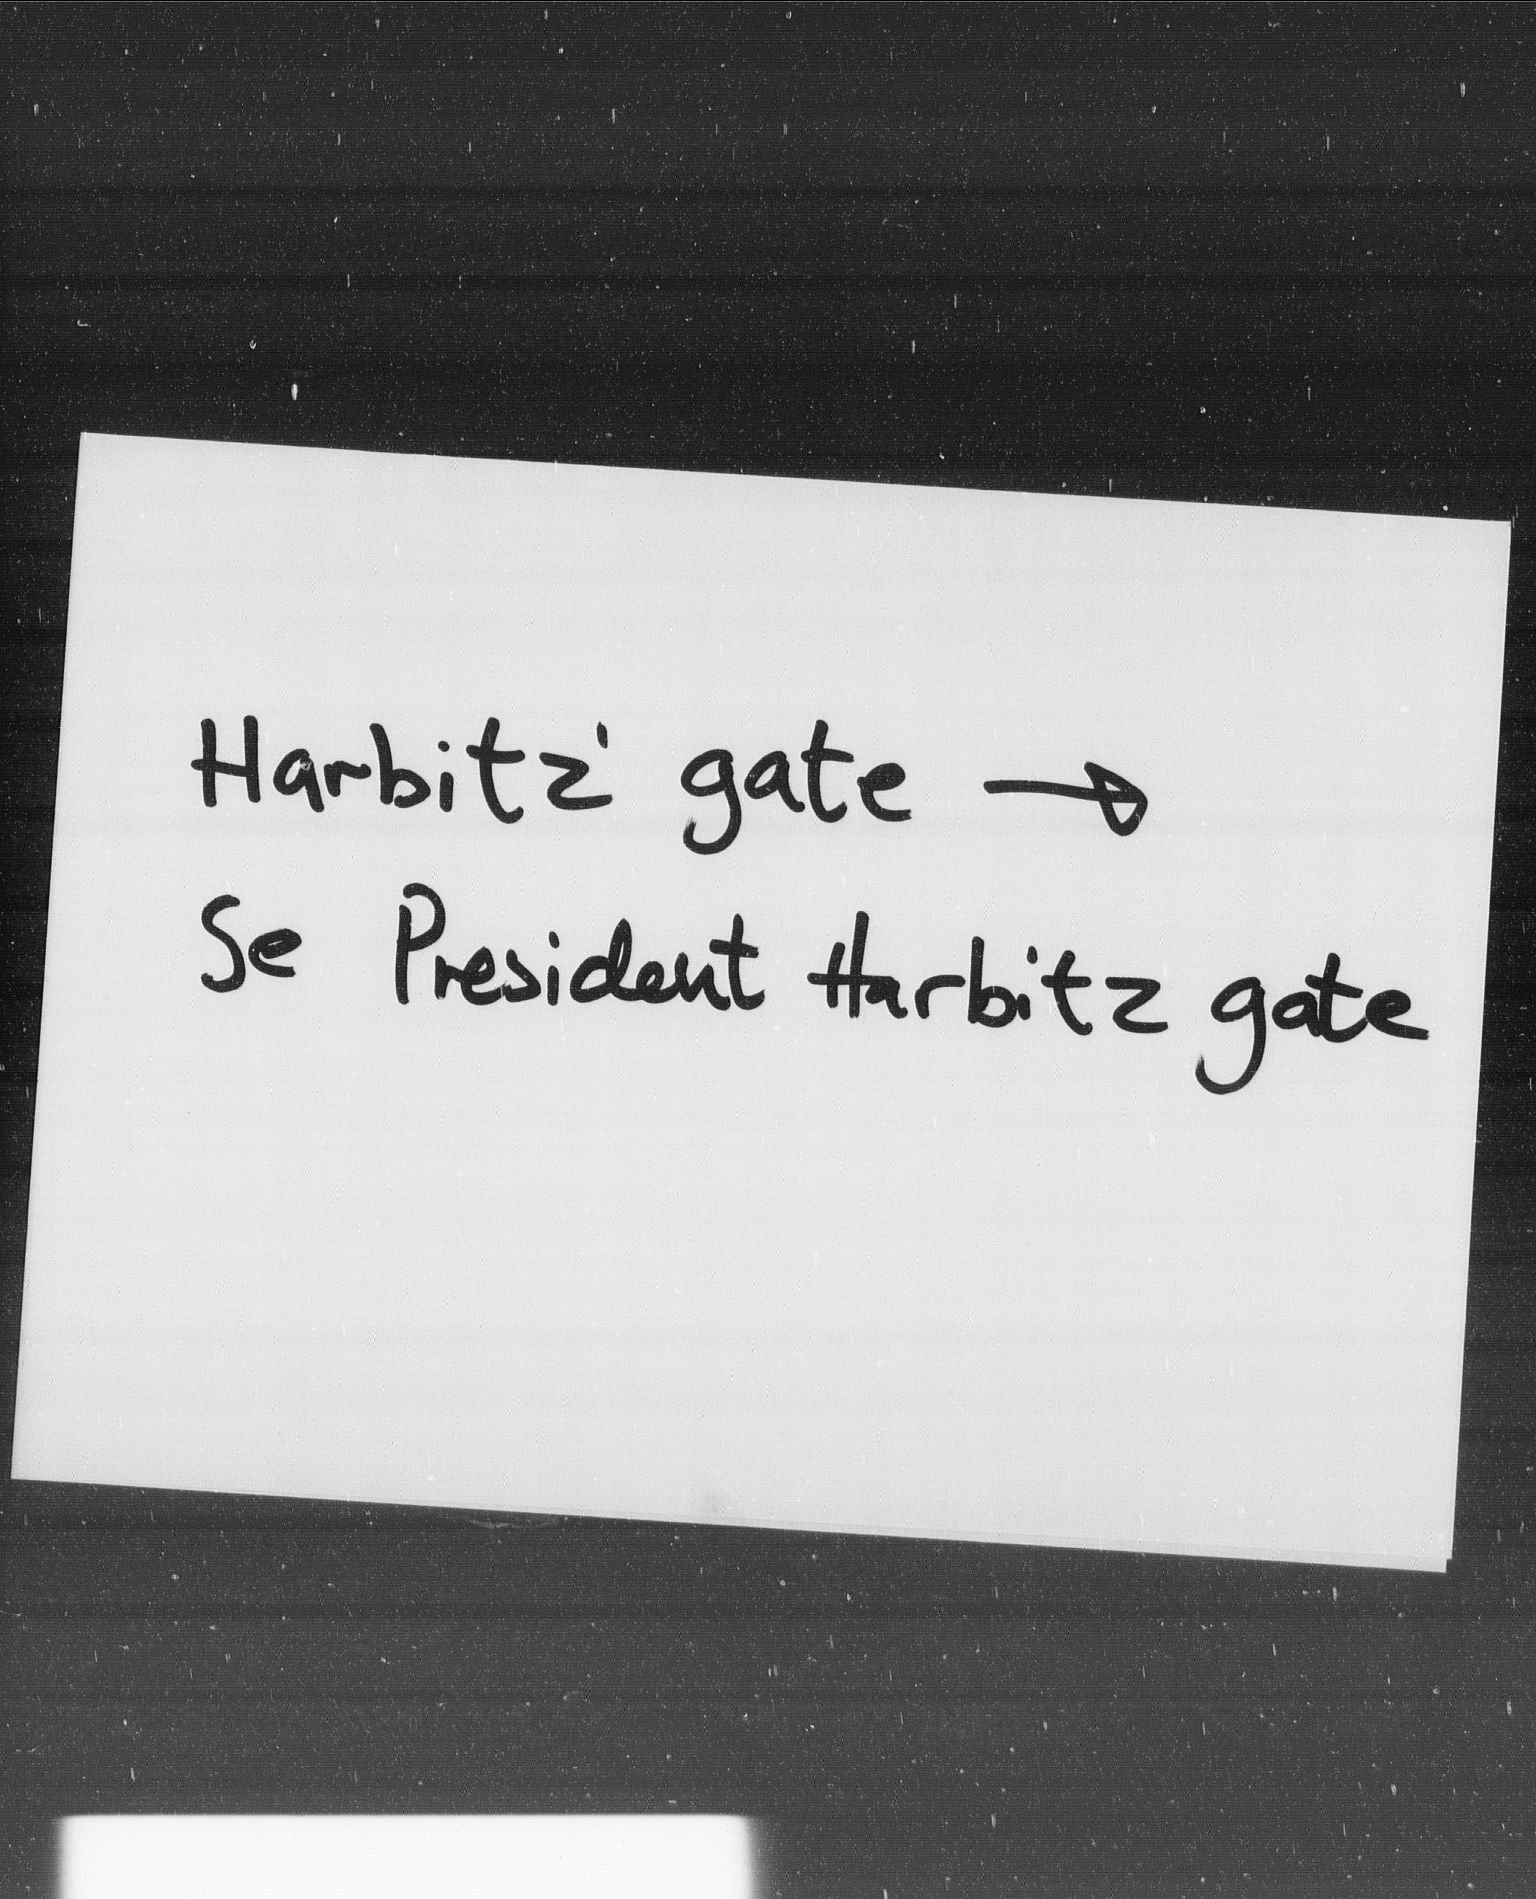 Harbitz' gate →
Se President Harbitz gate